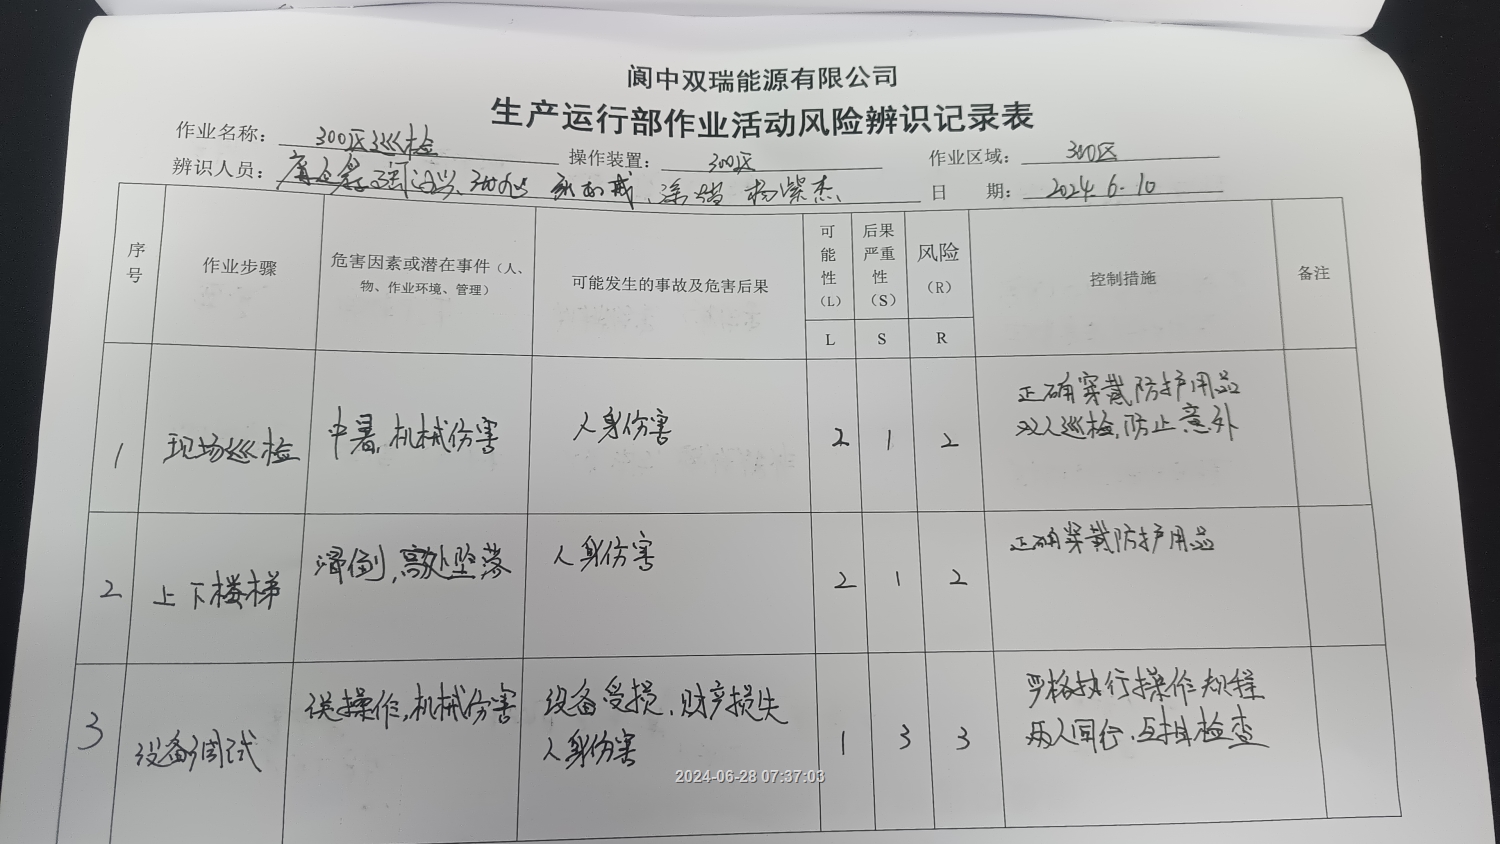 阆中双瑞能源有限公司
生产运行部作业活动风险辨识记录表
作业名称： 300区巡检 操作装置： 300区 作业区域： 300区
辨识人员： 涂 杨紫杰 日 期： 2024.6.10
序号 作业步骤 危害因素或潜在事件（人、物、作业环境、管理） 可能发生的事故及危害后果 可能性（L） 后果严重性（S） 风险（R） 控制措施 备注
L S R
1 现场巡检 中暑、机械伤害 人身伤害 2 1 2 正确穿戴防护用品
双人巡检，防止意外
2 上下楼梯 滑倒，高处坠落 人身伤害 2 1 2 正确穿戴防护用品
3 设备调试 误操作，机械伤害 设备受损、财产损失 1 3 3 严格执行操作规程
人身伤害 两人同行、互相检查
2024-06-28 07:37:03